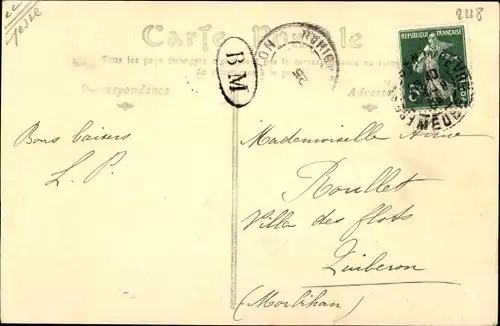 2218
Carte Postale
Tous les pays étrangers
Correspondance
Adresse
B M
RÉPUBLIQUE FRANÇAISE
Bons baisers
L. P.
Mademoiselle Anne
Roullet
Villa des flots
Quiberon
(Morbihan)